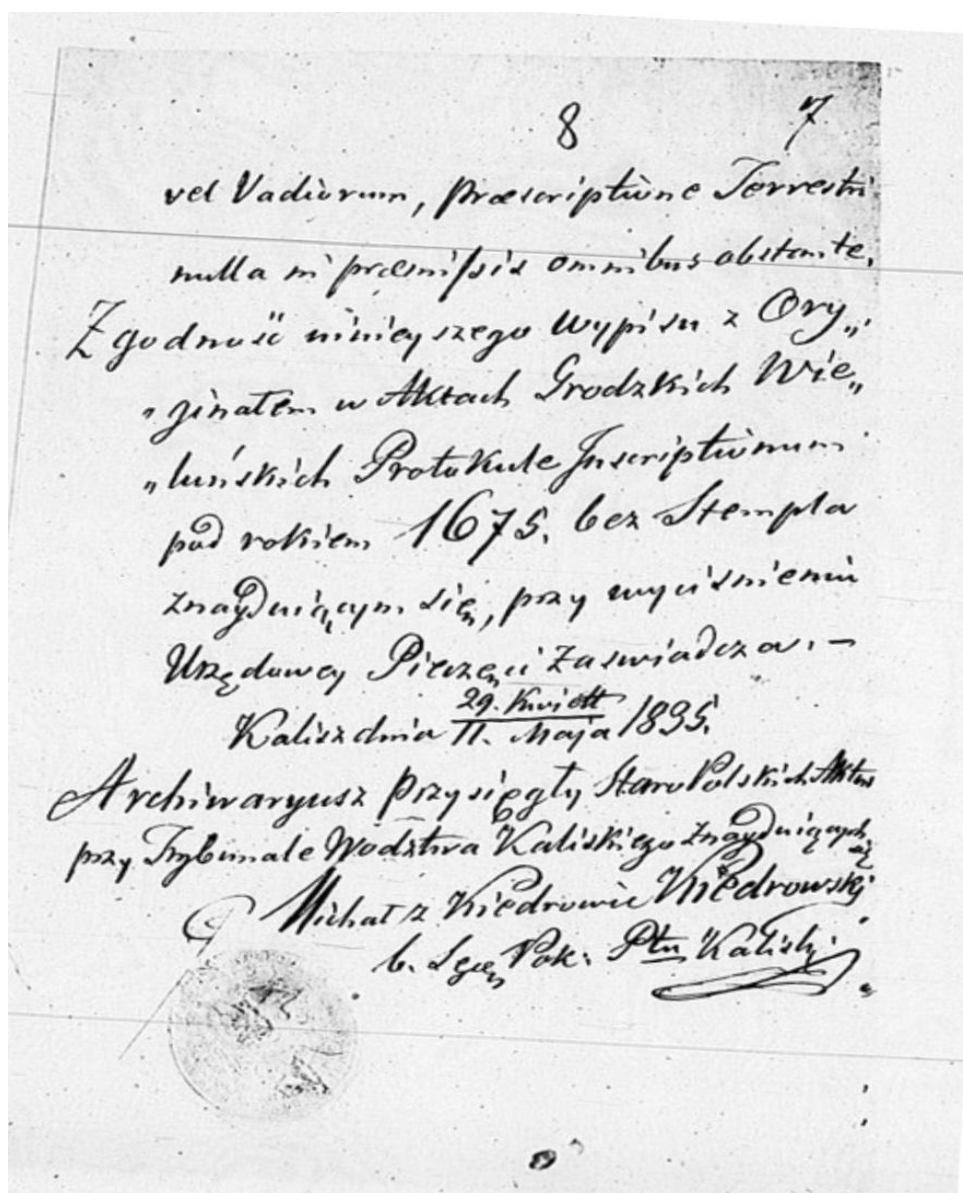 8 7
vel Vadiorum, præscriptione Terrestri
nulla in præmissis omnibus obstante.
Zgodność ninieyszego Wypisu z Ory„
„ginałem w Aktach Grodzkich Wie„
„luńskich Protokule Inscriptionum
pod rokiem 1675. bez Stempla
znayduiącym się, przy wyciśnieniu
Urzędowey Pieczęci Zaswiadcza. —
Kalisz dnia 29. Kwiett / 11. Maja 1835.
Archiwaryusz Przysięgły Staro Polskich Aktow
przy Trybunale Wodztwa Kaliskiego Znayduiących się
Michał z Kiedrowic Kiedrowski
b. Sęe Pok: Ptu Kaliski